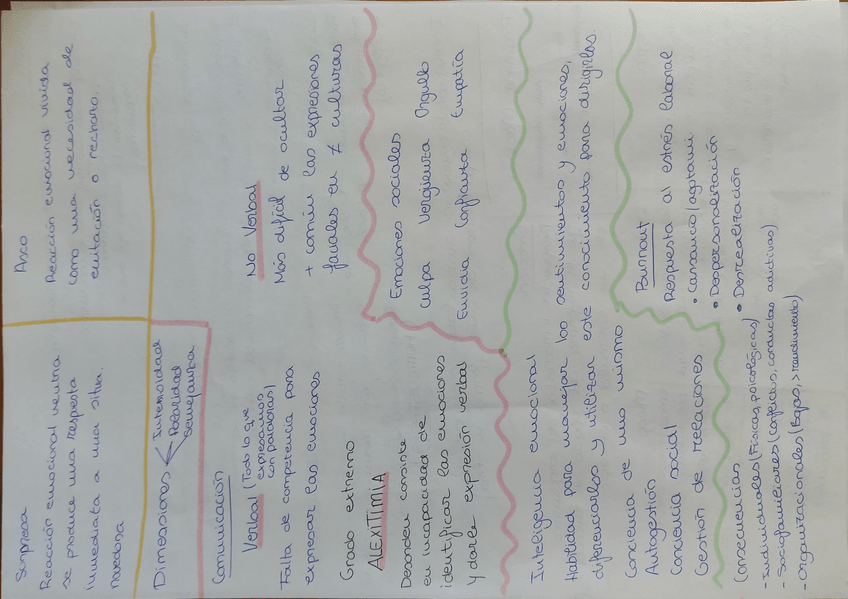 Sorpresa
Reacción emocional neutra
se produce una respuesta
inmediata a una situa.
novedosa
Asco
Reacción emocional vivida
como una necesidad de
evitación o rechazo.
Dimensiones
Intensidad
Polaridad
Semejanza
Comunicación
Verbal (Todo lo que
expresamos
con palabras)
Falta de competencia para
expresar las emociones
Grado extremo
ALEXITIMIA
Desorden consiste
en incapacidad de
identificar las emociones
y darle expresión verbal
No Verbal
Más difícil de ocultar
+ común las expresiones
faciales en ≠ culturas
Emociones sociales
Culpa Vergüenza Orgullo
Envidia Confianza Empatía
Inteligencia emocional
Habilidad para manejar los sentimientos y emociones,
diferenciarlos y utilizar este conocimiento para dirigirlos.
Conciencia de uno mismo
Autogestión
Conciencia social
Gestión de relaciones
Burnout
Respuesta al estrés laboral
• Cansancio/agotami
• Despersonalización
• Desrealización
Consecuencias
- Individuales (Físicas, psicológicas)
- Sociofamiliares (conductas adictivas)
- Organizacionales (Bajas, > rendimiento)